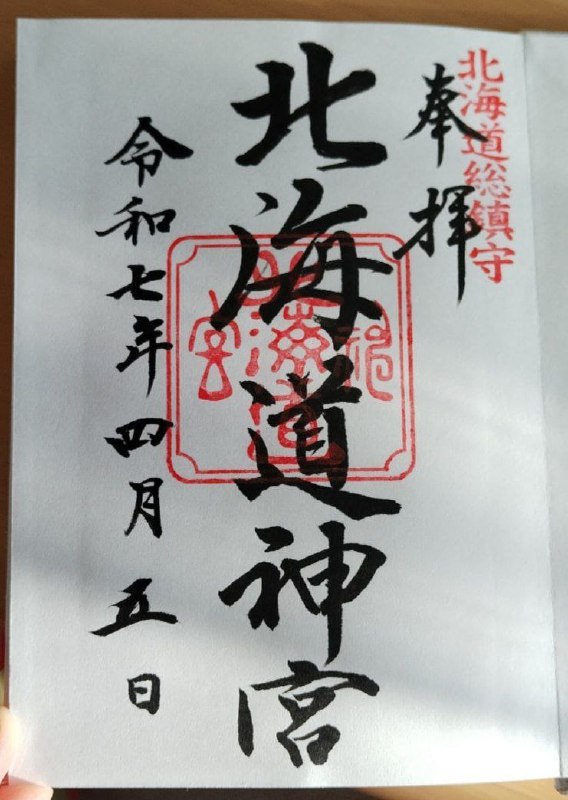 北海道総鎮守
奉拝
北海道神宮
北海道神宮
令和七年四月五日